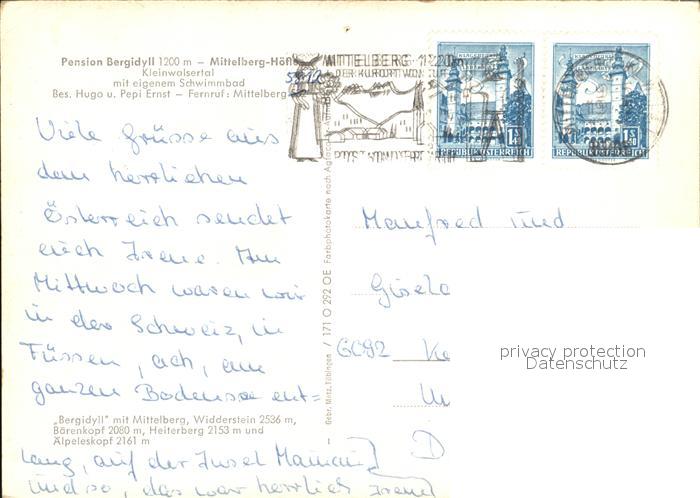 Pension Bergidyll 1200 m – Mittelberg-Höfle
Kleinwalsertal
mit eigenem Schwimmbad
Bes. Hugo u. Pepi Ernst – Fernruf: Mittelberg
MITTELBERG
1.50
REPUBLIK ÖSTERREICH
1.50
REPUBLIK ÖSTERREICH
Viele Grüsse aus
dem herrlichen
Österreich sendet
euch Irene. Am
Mittwoch waren wir
in der Schweiz, in
Füssen, ach, am
ganzen Bodensee ent=
„Bergidyll" mit Mittelberg, Widderstein 2536 m,
Bärenkopf 2080 m, Heiterberg 2153 m und
Älpeleskopf 2161 m
lang, auf der Insel Mainau
und so, das war herrlich Irene
Gebr. Metz, Tübingen / 171 O 292 OE Farbphotokarte nach Agfacolor-Aufnahme
Manfred und
Gisela
6092 Ke
D
privacy protection
Datenschutz